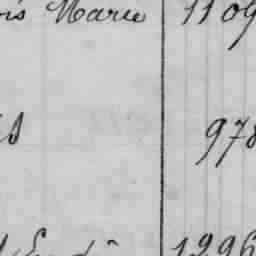 ois Marie 1109
is 978
1296